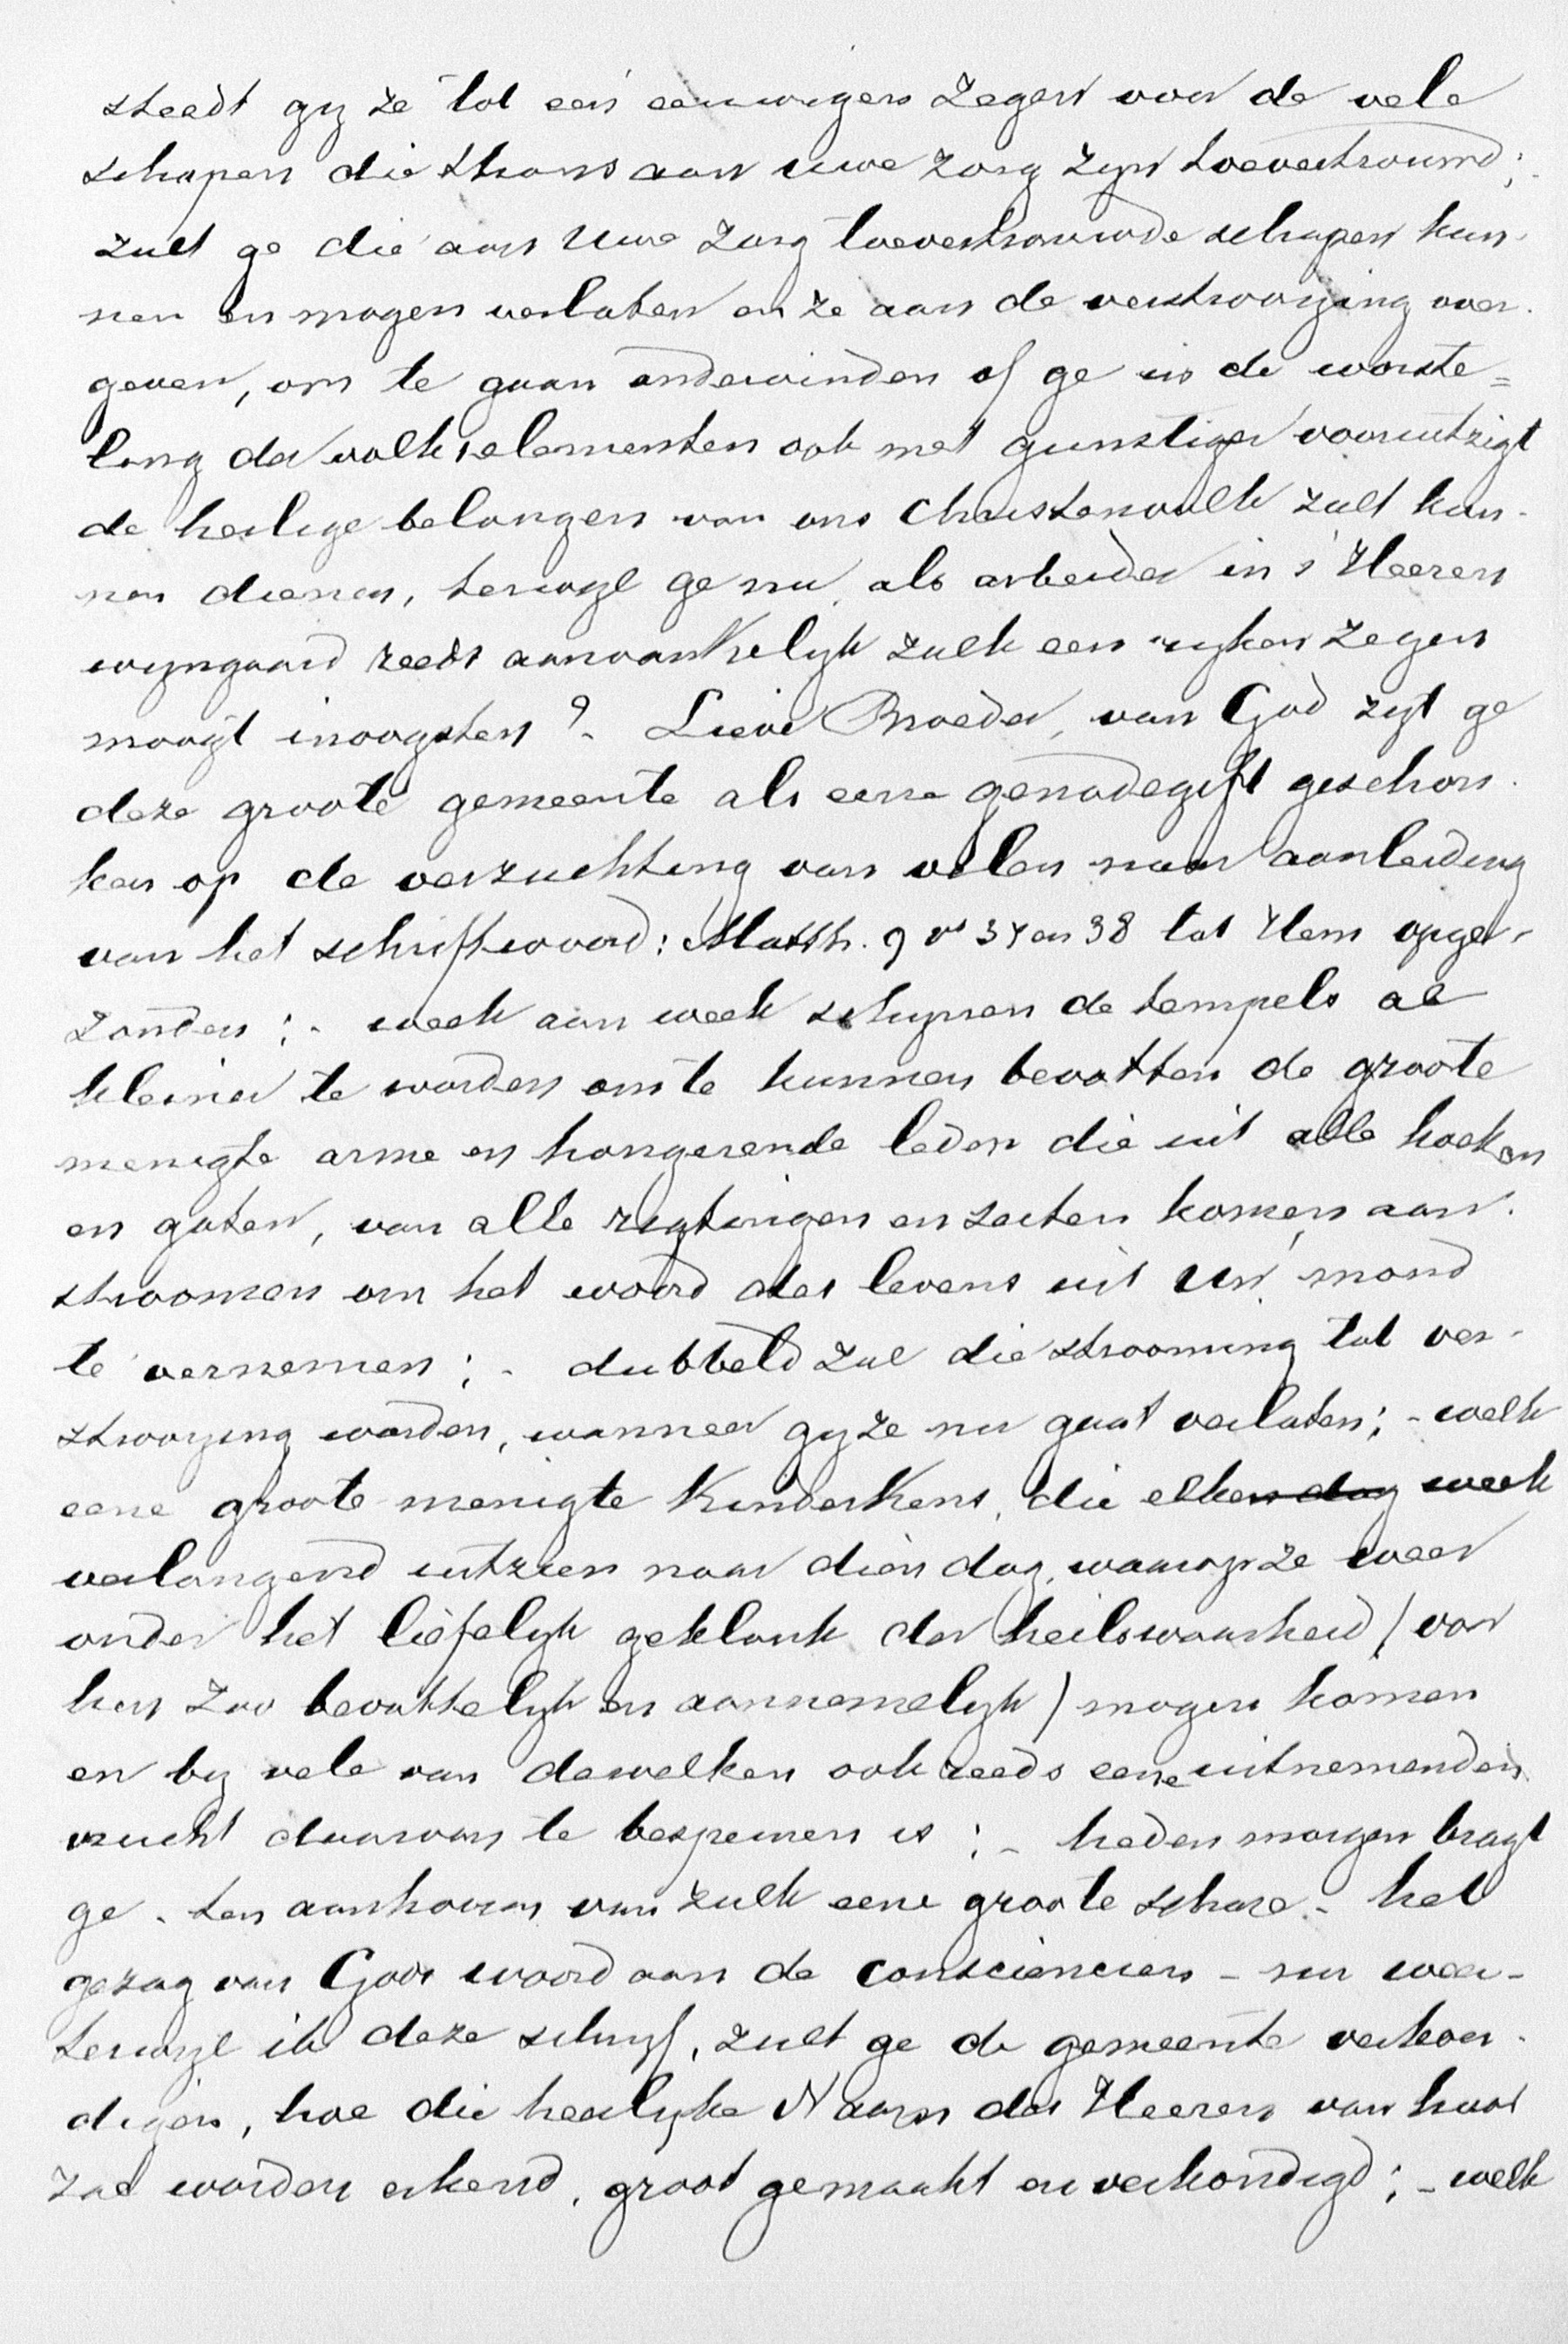 steedt gij ze tot een eeuwigen Zegen voor de vele
schapen die thans aan uwe zorg zijn toevertrouwd;
zult ge die aan Uwe Zorg toevertrouwde schapen kun-
nen en mogen verlaten en ze aan de verstrooijing over-
geven, om te gaan ondervinden of ge in de worste=
ling der volkselementen ook met gunstiger vooruitzigt
de heilige belangen van ons Christenvolk zult kun-
nen dienen, terwijl ge nu, als arbeider in 's Heeren
wijngaard reeds aanvankelijk zulk een rijken zegen
moogt inoogsten? - Lieve Broeder, van God zijt ge
deze groote gemeente als eene genadegift geschon-
ken op de verzuchting van velen naar aanleiding
van het schriftwoord: Matth. 9 vs 37 en 38 tot Hem opge-
zonden; - week aan week schijnen de tempels al
kleiner te worden om te kunnen bevatten de groote
menigte arme en hongerende leden die uit alle hoeken
en gaten, van alle rigtingen en secten komen aan-
stroomen om het woord des levens uit Uw mond
te vernemen; - dubbeld zal die strooming tot ver-
strooijing worden, wanneer gij ze nu gaat verlaten; - welk
eene groote menigte Kinderkens, die elken dag week
verlangend uitzien naar dien dag, waarop ze weer
onder het liefelijk geklank der heilswaarheid / voor
hen zoo bevattelijk en aannemelijk / mogen komen
en bij vele van dewelken ook reeds eene uitnemenden
vrucht daarvan te bespeuren is; - heden morgen bragt
ge - ten aanhooren van zulk eene groote schare - het
gezag van Gods woord aan de conscienciën - nu weer -
terwijl ik deze schrijf, zult ge de gemeente verkon-
digen, hoe die heerlijke Naam des Heeren van haar
zal worden erkend, groot gemaakt en verkondigd; - welk